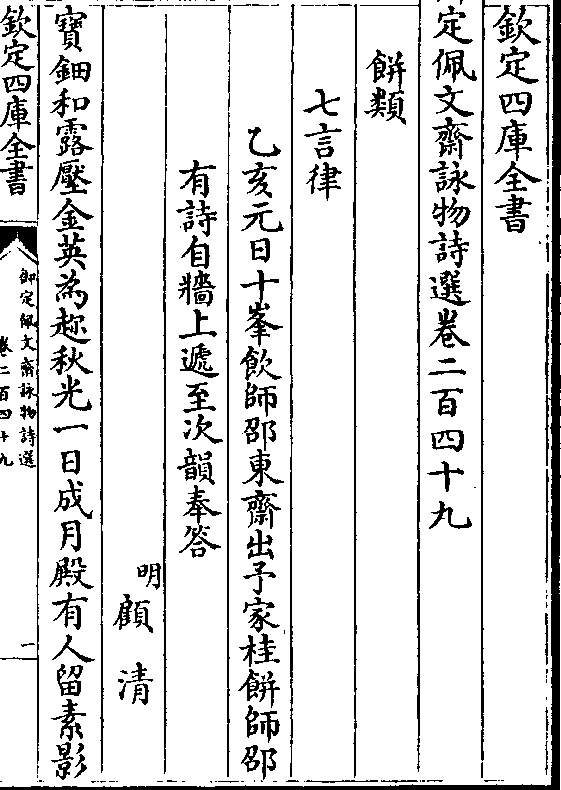 欽定四庫全書
定佩文齋詠物詩選卷二百四十九
餅類
七言律
乙亥元日十峯飲師邵東齋出予家桂餅師邵
有詩自牆上遞至次韻奉答
明顧清
寶鈿和露壓金英為趂秋光一日成月殿有人留素影
欽定四庫全書
御定佩文齋詠物詩選
卷二百四十九
一